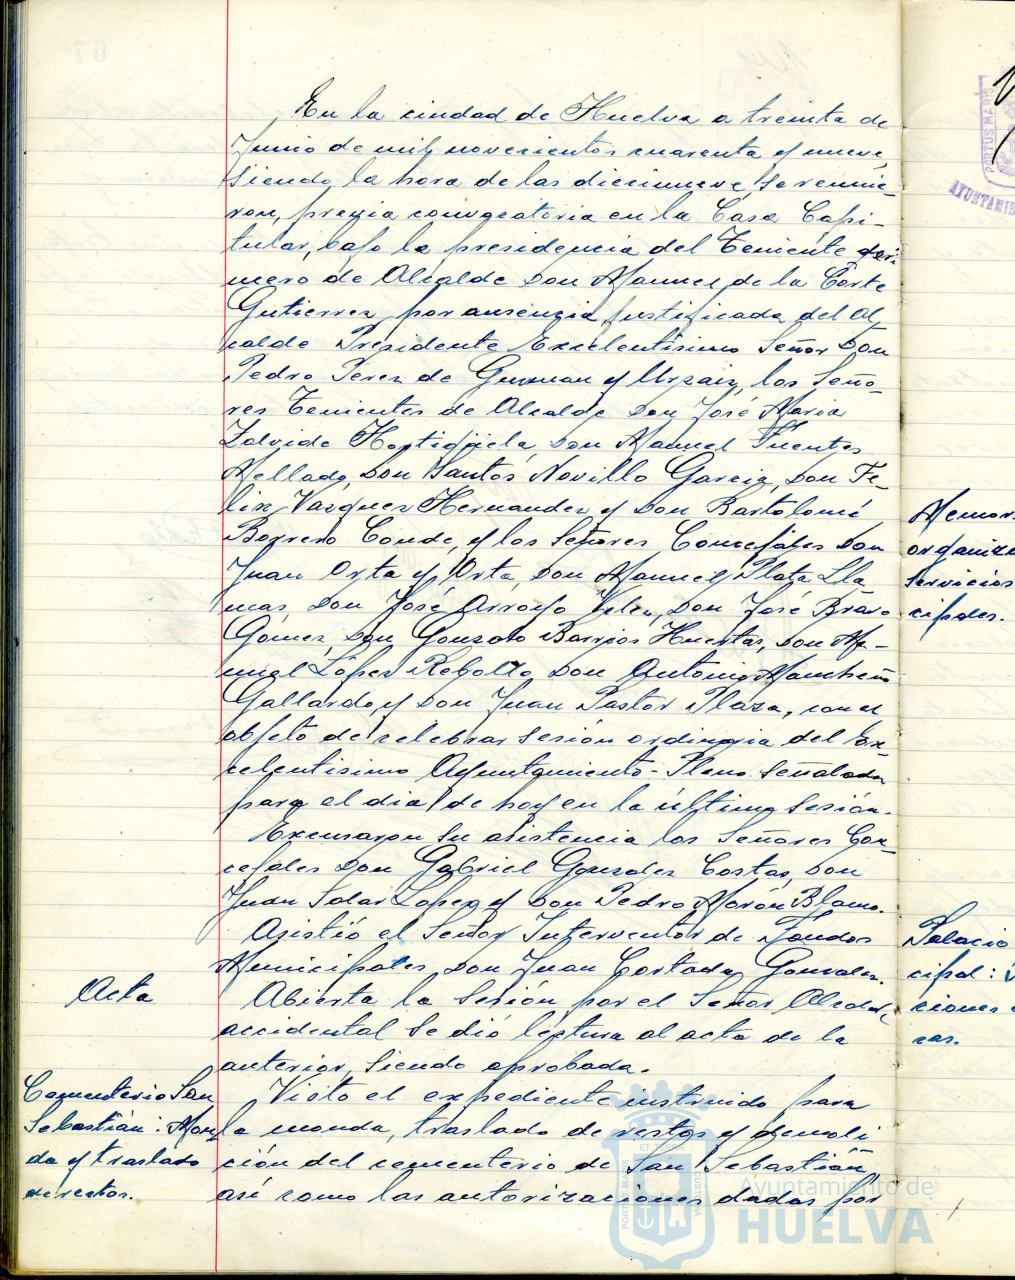 En la ciudad de Huelva a treinta de
Junio de mil novecientos cuarenta y nueve,
siendo la hora de las diecinueve, se reunie-
ron, previa convocatoria en la Casa Capi-
tular, bajo la presidencia del Teniente pri-
mero de Alcalde Don Manuel de la Corte
Gutierrez, por ausencia justificada del Al-
calde Presidente Excelentísimo Señor Don
Pedro Perez de Guzman y Urzaiz, los Seño-
res Tenientes de Alcalde Don José Maria
Zalvide Hortigüela, Don Manuel Fuentes
Mellado, Don Santos Novillo Garcia, Don Fe-
lix Vazquez Hernandez y Don Bartolomé
Borrero Conde, y los Señores Concejales Don
Juan Orta y Orta, Don Manuel Plata Lla-
mas, Don José Arroyo Velez, Don José Bravo
Gómez, Don Gonzalo Barrios Huertas, Don Ma-
nuel López Rebollo, Don Antonio Mancheño
Gallardo, y Don Juan Pastor Plaza, con el
objeto de celebrar sesión ordinaria del Ex-
celentisimo Ayuntamiento-Pleno señalada
para el dia de hoy en la última sesión.
Excusaron su asistencia los Señores Con-
cejales Don Gabriel Gonzalez Costas, Don
Juan Tolar Lopez y Don Pedro Morón Blanco.
Asistió el Señor Interventor de Fondos
Municipales Don Juan Cortada Gonzalez.
Acta
Abierta la sesión por el Señor Alcalde
accidental se dió lectura al acta de la
anterior, siendo aprobada.
Cementerio San
Sebastián: Mon
da y traslado
de restos.
Visto el expediente instruido para
la monda, traslado de restos y demoli-
ción del cementerio de San Sebastián,
así como las autorizaciones dadas por
Memor
organiza
servicios
cipales.
Palacio
cipal:
ciones
cas.
PORTUS MARIS
AYUNTAMIE
Ayuntamiento de
HUELVA